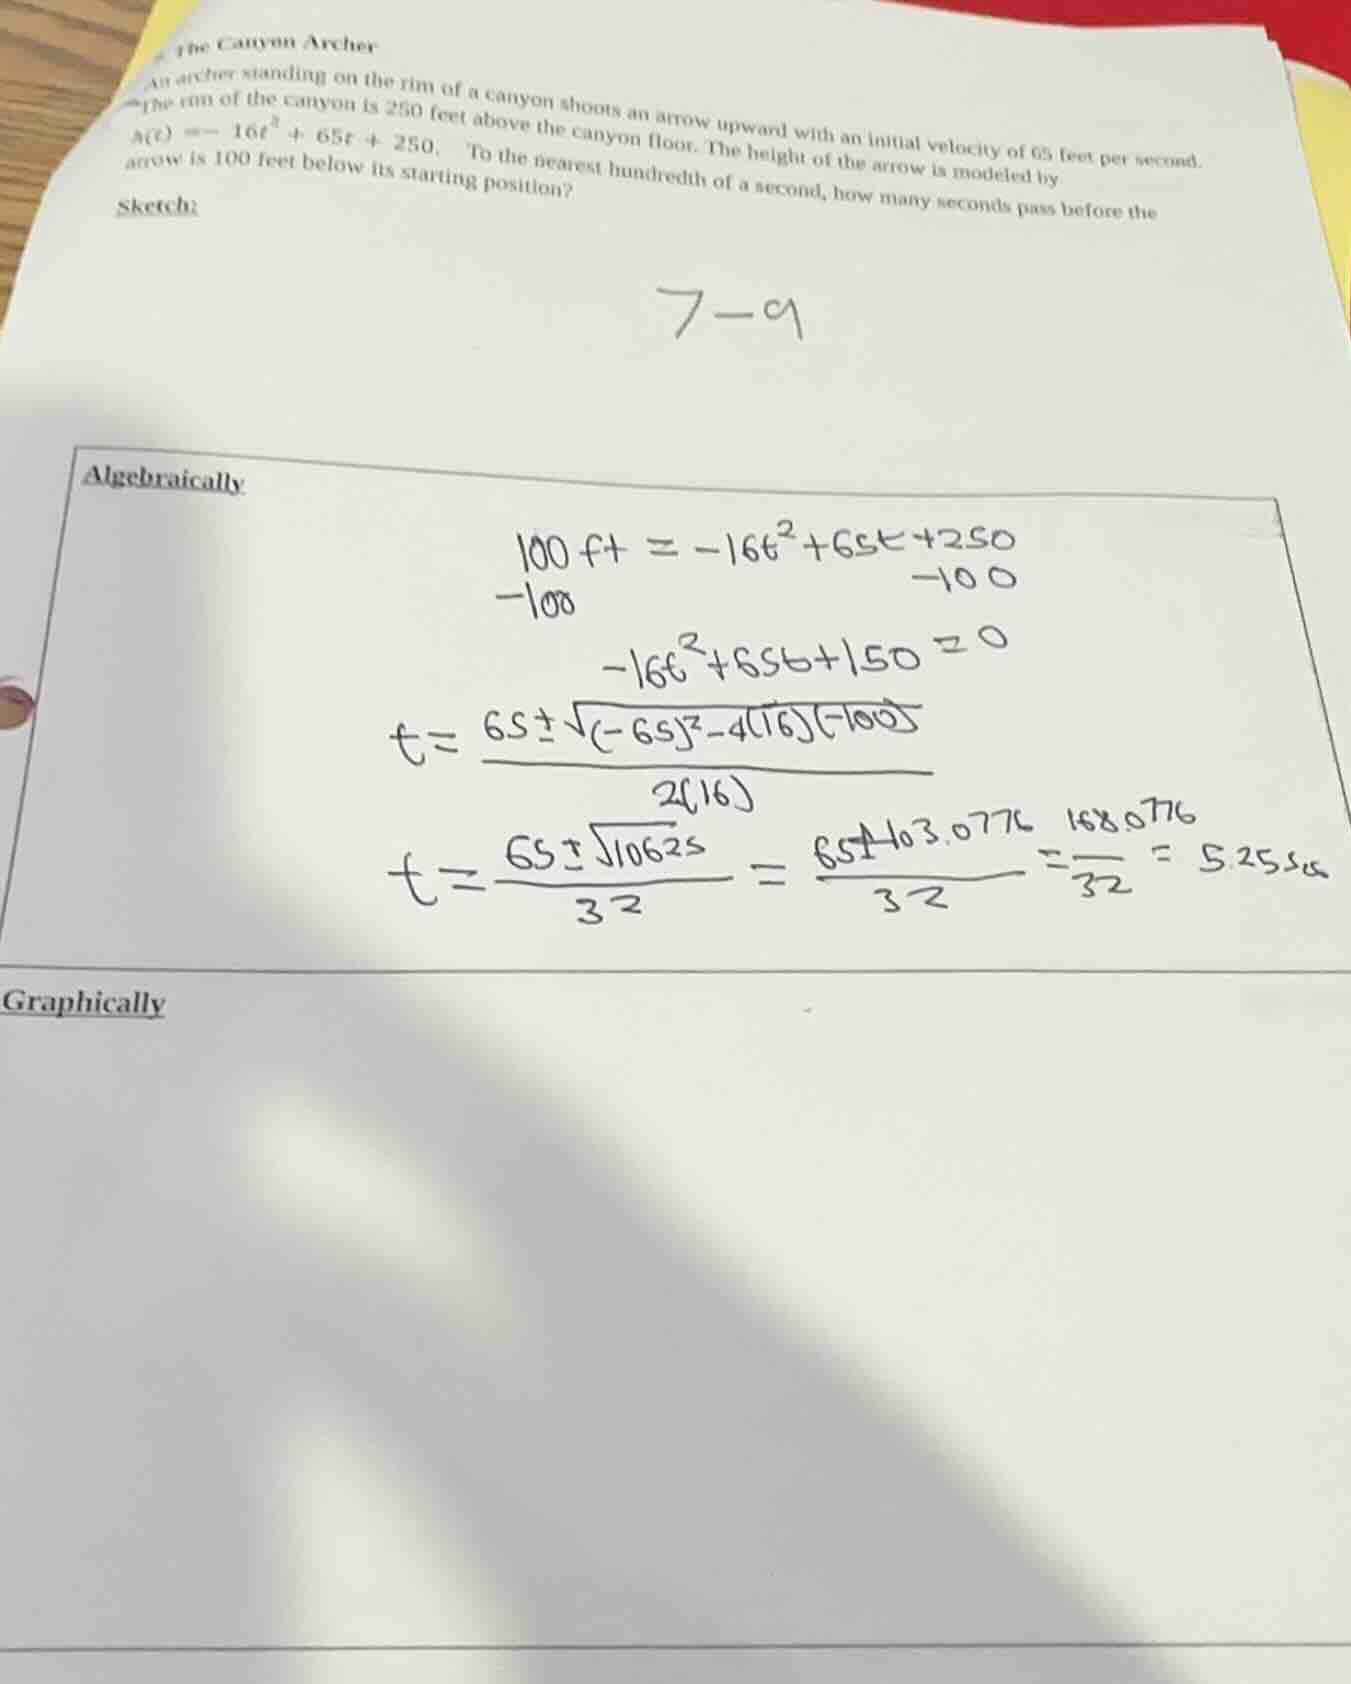 The Canyon Archer
An archer standing on the rim of a canyon shoots an arrow upward with an initial velocity of 65 feet per second.
The rim of the canyon is 250 feet above the canyon floor. The height of the arrow is modeled by
h(t) = − 16t² + 65t + 250. To the nearest hundredth of a second, how many seconds pass before the
arrow is 100 feet below its starting position?
Sketch:
7-9
Algebraically
100 ft = -16t² + 65t + 250
-100 -100
-16t² + 65t + 150 = 0
t = 65 ± √(-65)² - 4(16)(-100) / 2(16)
t = 65 ± √10625 / 32 = 65 + 103.0776 / 32 = 168.0776 / 32 = 5.25 sec
Graphically